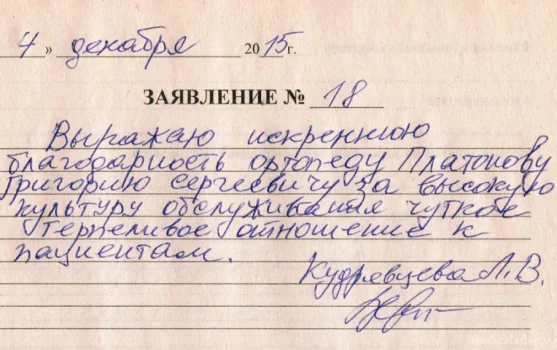 4 » декабря 2015 г.
ЗАЯВЛЕНИЕ № 18
Выражаю искреннюю
благодарность ортопеду Платонову
Григорию Сергеевичу за высокую
культуру обслуживания чуткое
терпеливое отношение к
пациентам.
Кудрявцева Л.В.